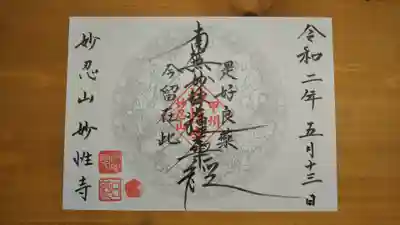 令和二年 五月十三日
是好良薬
南無妙法蓮華経
今留在此
甲州
妙忍山
妙忍山 妙性寺